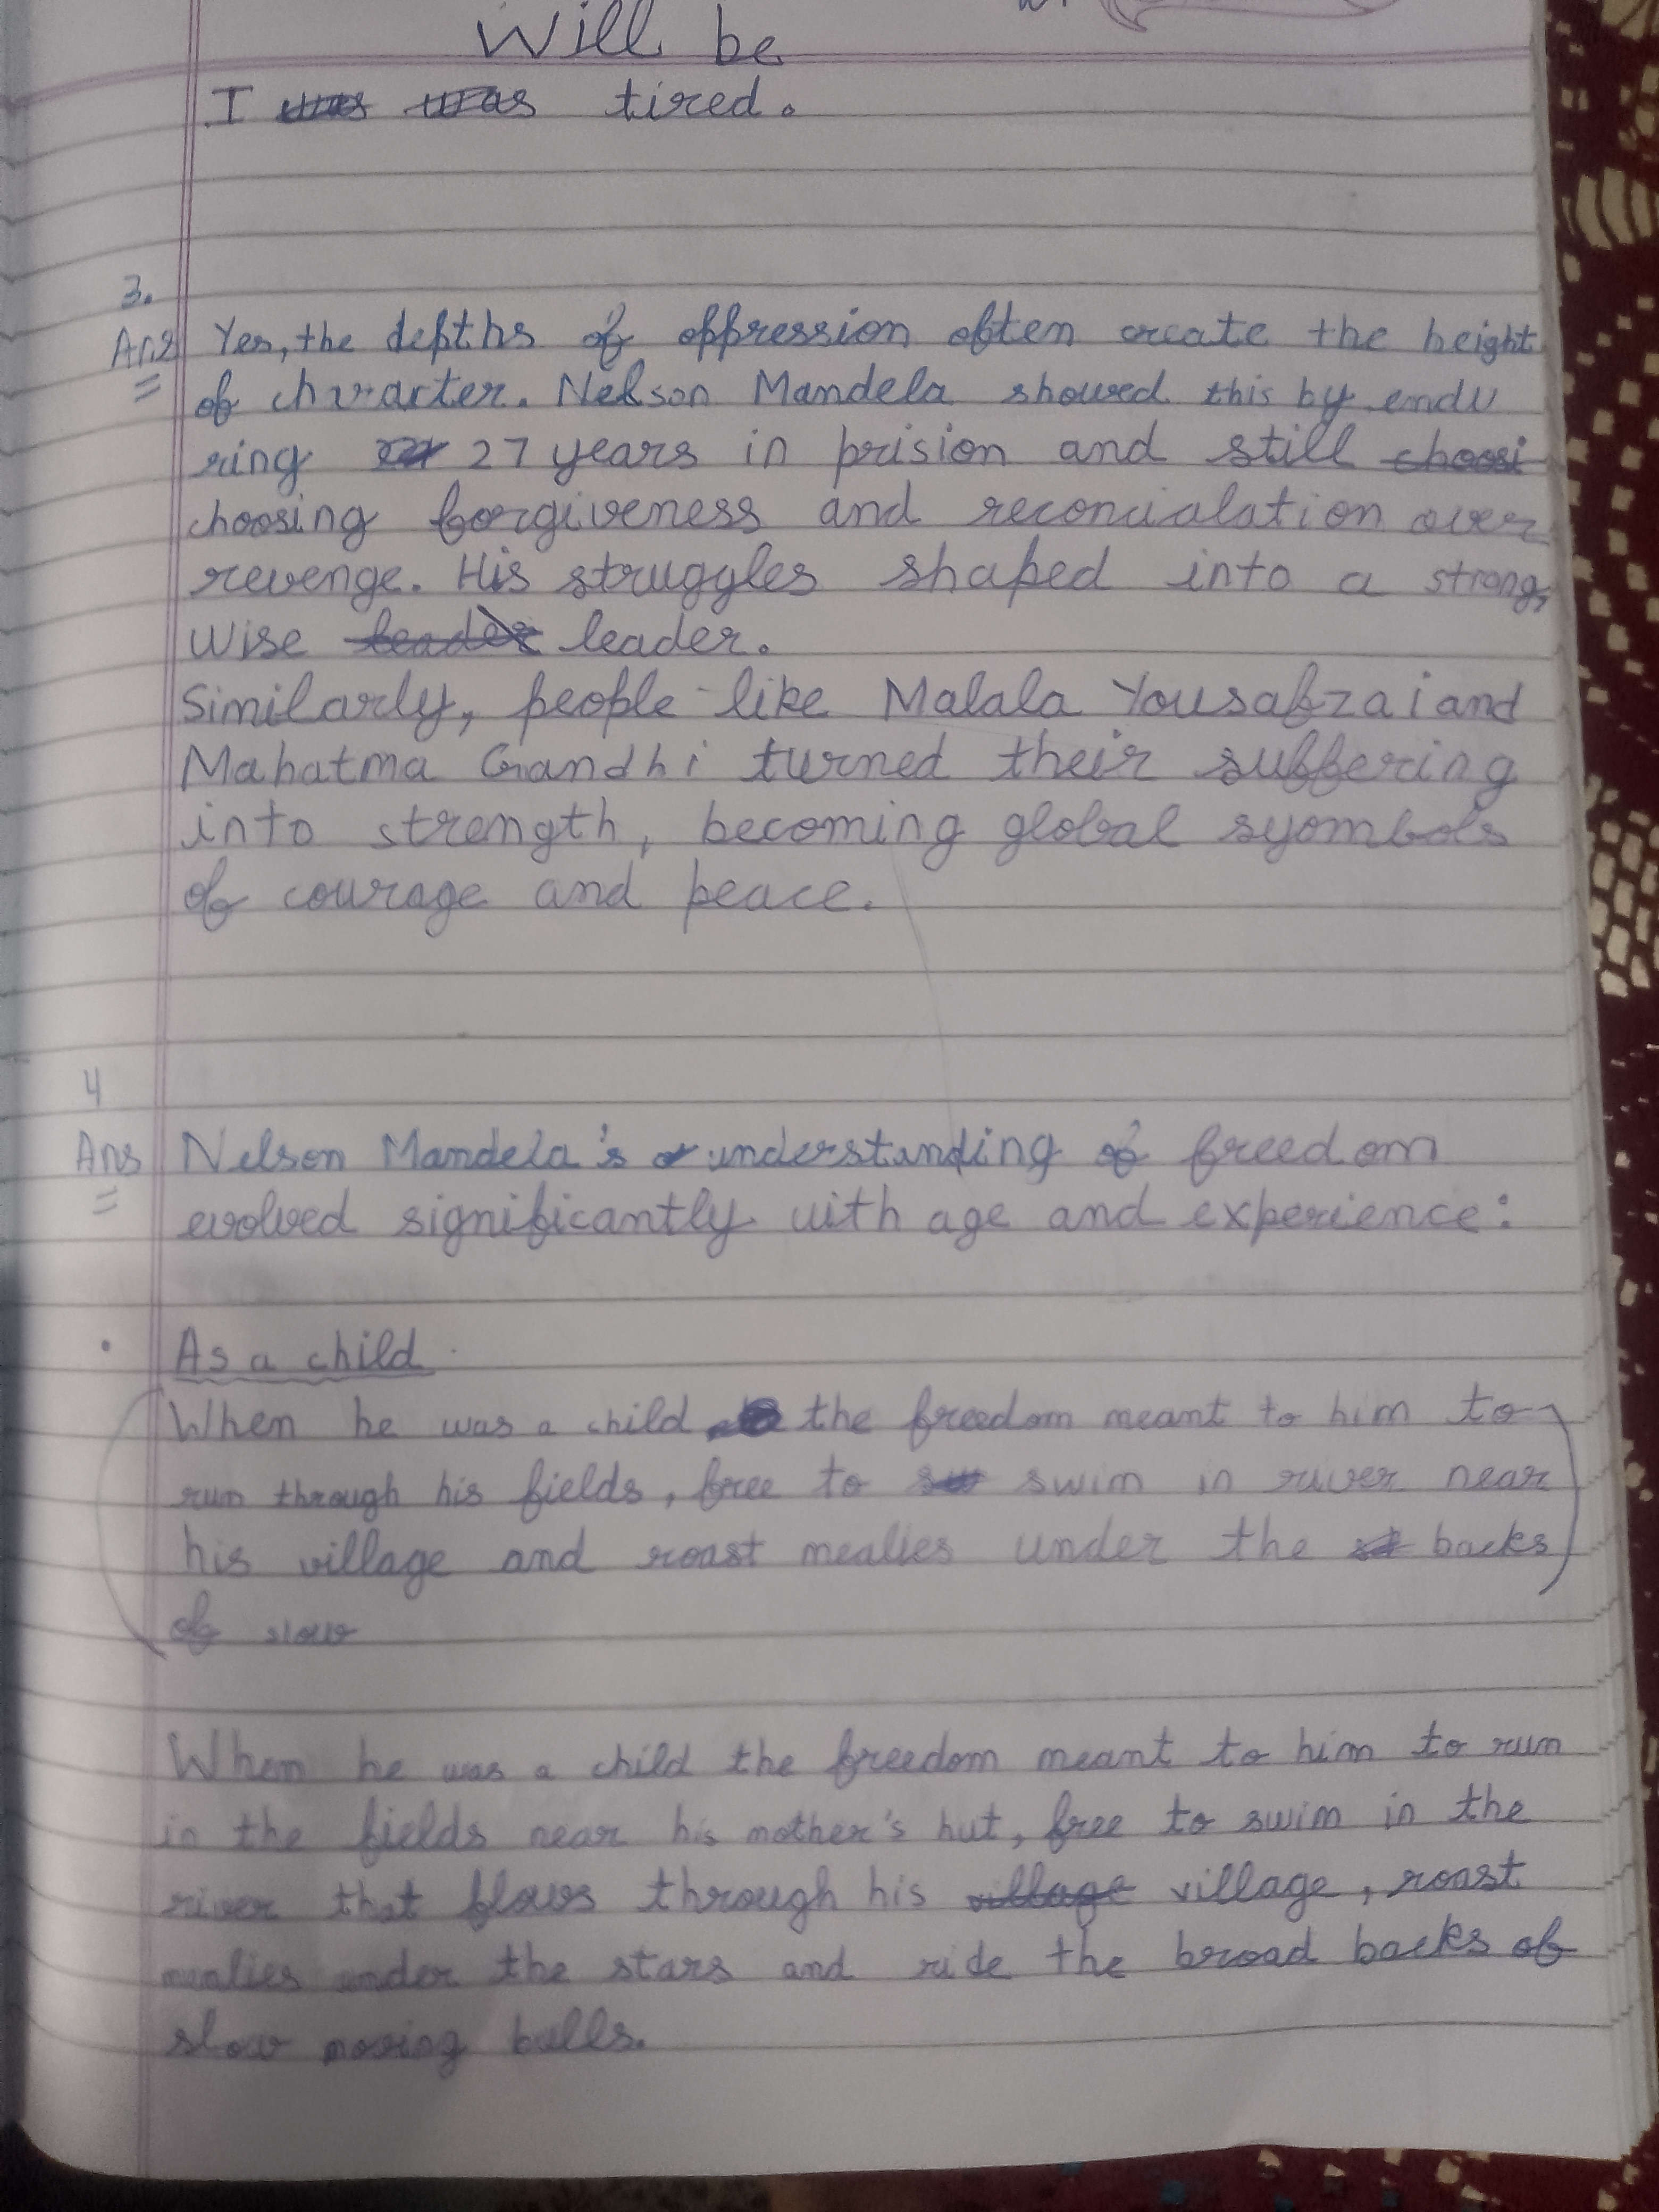 Will be
I was was tired.
3.
Ans Yes, the depths of oppression often create the height
of chracter. Nelson Mandela showed this by endu
ring 27 years in prision and still choosi
choosing forgiveness and reconcialation over
revenge. His struggles shaped into a strong,
wise leader leader.
Similarly, people like Malala Yousafzai and
Mahatma Gandhi turned their suffering
into strength, becoming global syombols
of courage and peace.
4
Ans Nelson Mandela's understanding of freedom
evolved significantly with age and experience:
• As a child
When he was a child the freedom meant to him to
run through his fields, free to swim in river near
his village and roast mealies under the backs
of slow
When he was a child the freedom meant to him to run
in the fields near his mother's hut, free to swim in the
river that flows through his village village, roast
mealies under the stars and ride the broad backs of
slow moving bulls.